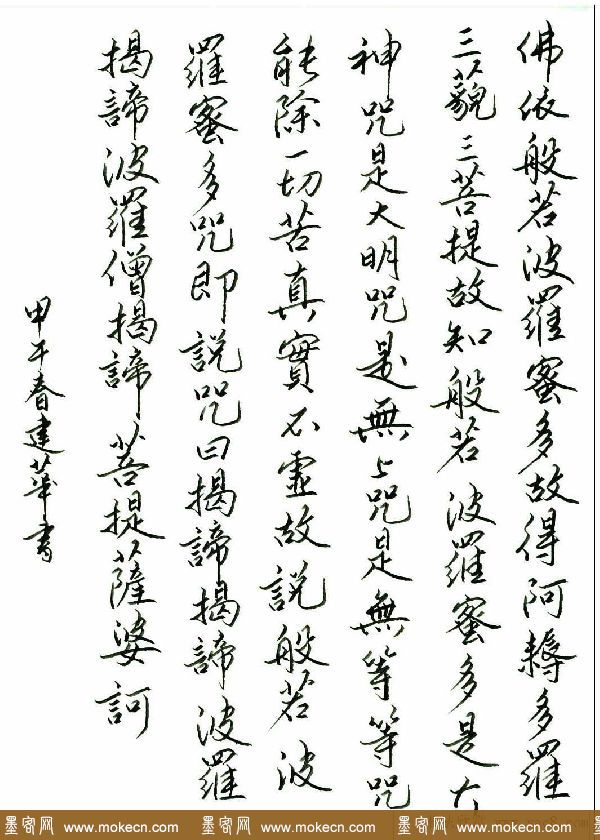 佛依般若波羅蜜多故得阿耨多羅
三藐三菩提故知般若波羅蜜多是大
神咒是大明咒是無上咒是無等等咒
能除一切苦真實不虛故說般若波
羅蜜多咒即說咒曰揭諦揭諦波羅
揭諦波羅僧揭諦菩提薩婆訶
甲午春建華書
墨客网 www.mokecn.com 墨客网 www.mokecn.com 墨客网 www.mokecn.com 墨客网 www.mokecn.com